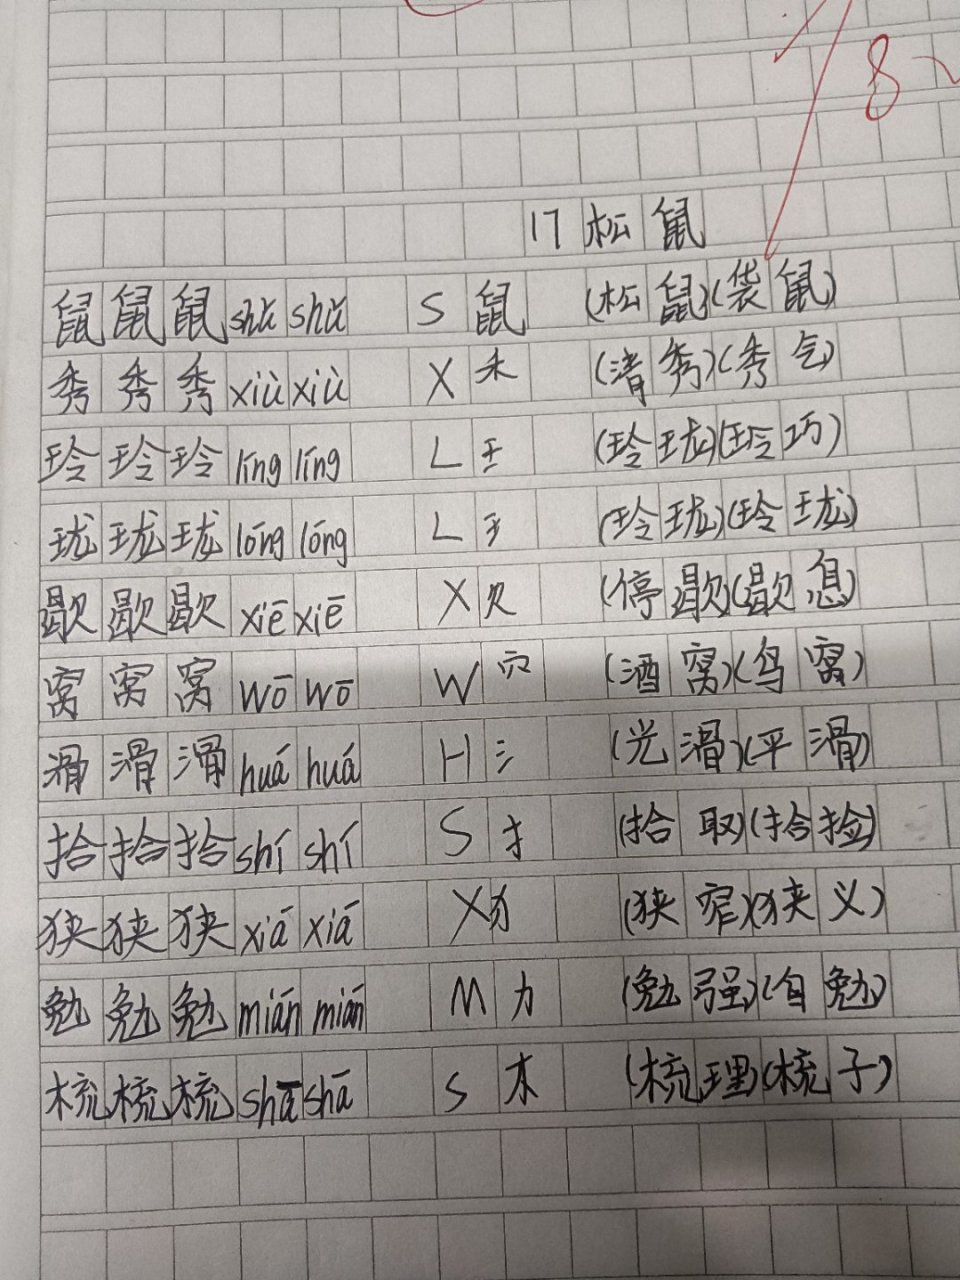 8
17 松鼠
鼠 鼠 鼠 shǔ shǔ S 鼠 (松鼠)(袋鼠)
秀 秀 秀 xiù xiù X 禾 (清秀)(秀气)
玲 玲 玲 líng líng L 王 (玲珑)(玲巧)
珑 珑 珑 lóng lóng L 王 (玲珑)(玲珑)
歇 歇 歇 xiē xiē X 欠 (停歇)(歇息)
窝 窝 窝 wō wō W 穴 (酒窝)(鸟窝)
滑 滑 滑 huá huá H 氵 (光滑)(平滑)
拾 拾 拾 shí shí S 扌 (拾取)(拾捡)
狭 狭 狭 xiá xiá X 犭 (狭窄)(狭义)
勉 勉 勉 mián mián M 力 (勉强)(自勉)
梳 梳 梳 shā shā S 木 (梳理)(梳子)